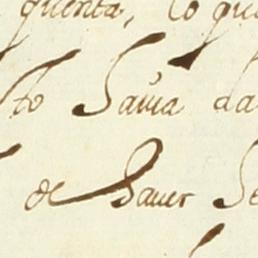 quenta, lo qu
to Savia da
de Haver Se